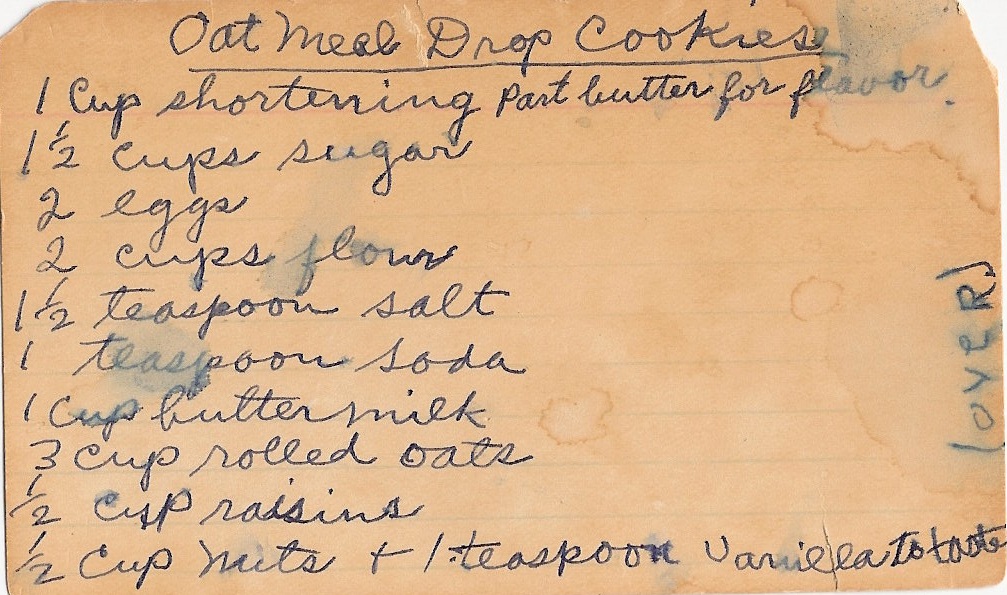 Oatmeal Drop Cookies
1 Cup shortenring Part butter for flavor.
1 1/2 cups sugar
2 eggs
2 cups flour
1 1/2 teaspoon salt
1 teaspoon soda
1 cup buttermilk
3 cup rolled oats
1/2 cup raisins
1/2 Cup nuts + 1 teaspoon Vanilla to taste
(oveR)